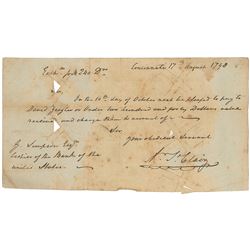 Exch.ᵉ for 240 Drs Cincinnati 17th August 1798
Sir,
On the 10th day of October next be pleased to pay to
David Zeigler or Order two hundred and forty Dollars value
received and charge them to account of
Sir
Your obedient Servant
Ar. St. Clair
J. Simpson Esqr.
Cashier of the Bank of the
united States